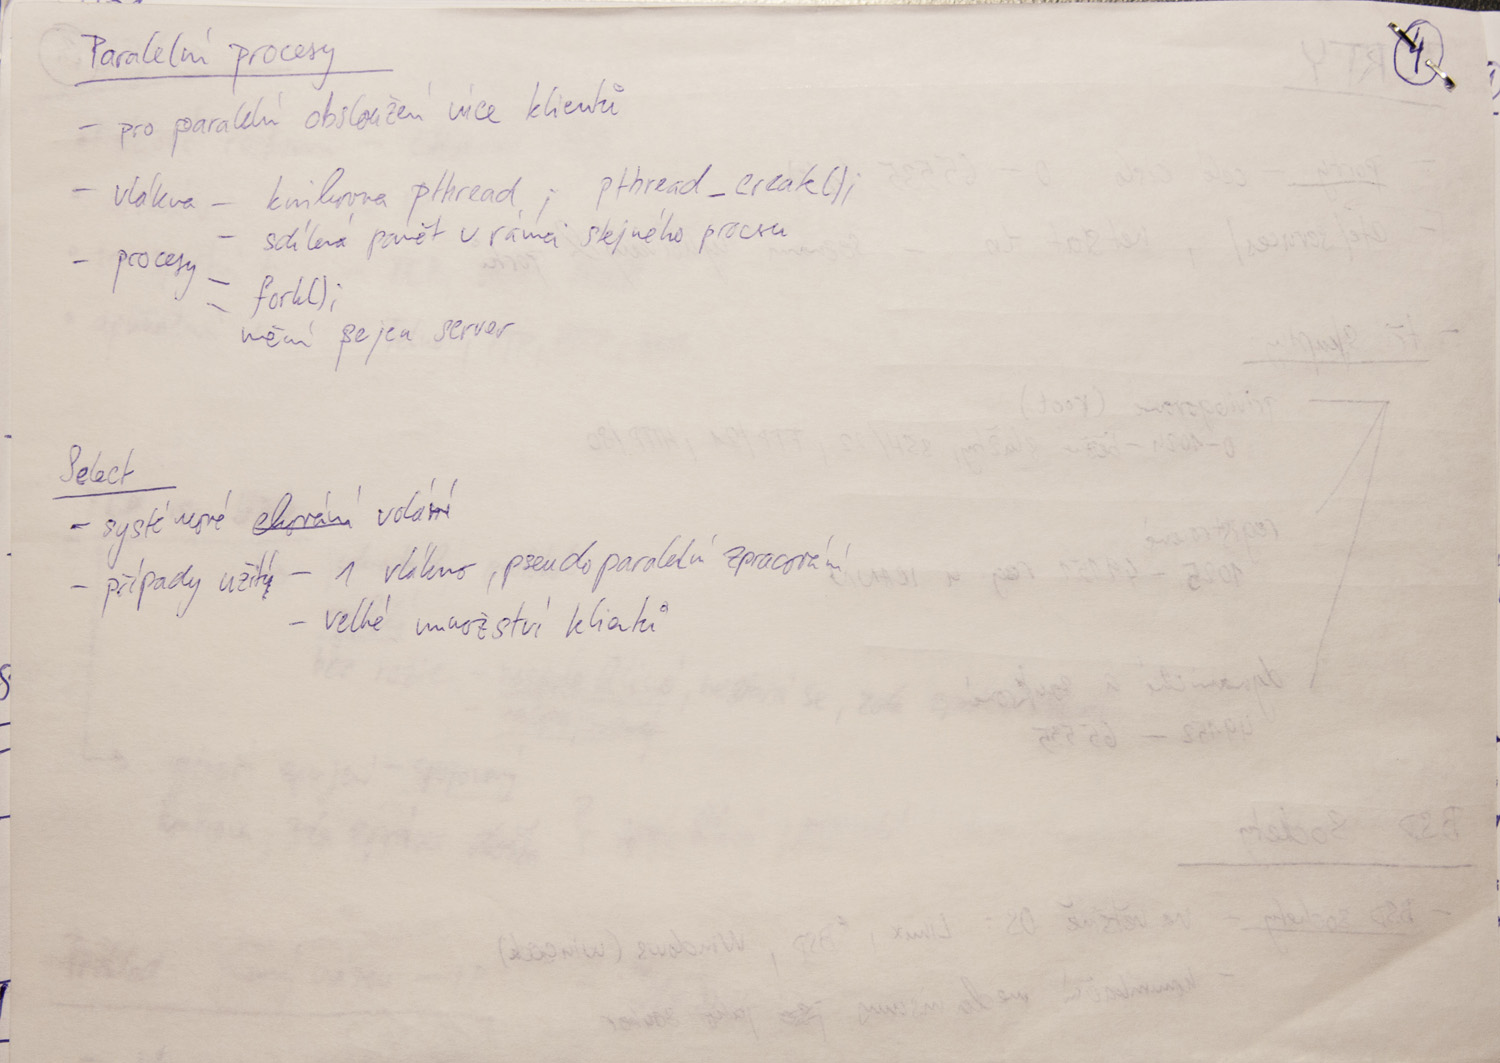 4
Paralelní procesy
- pro paralelní obsloužení více klientů
- vlákna - knihovna pthread ; pthread_create();
- sdílená paměť v rámci stejného procesu
- procesy
- fork();
- mění se jen server
Select
- systémové chování volání
- případy užití - 1 vlákno, pseudoparalelní zpracování
- velké množství klientů